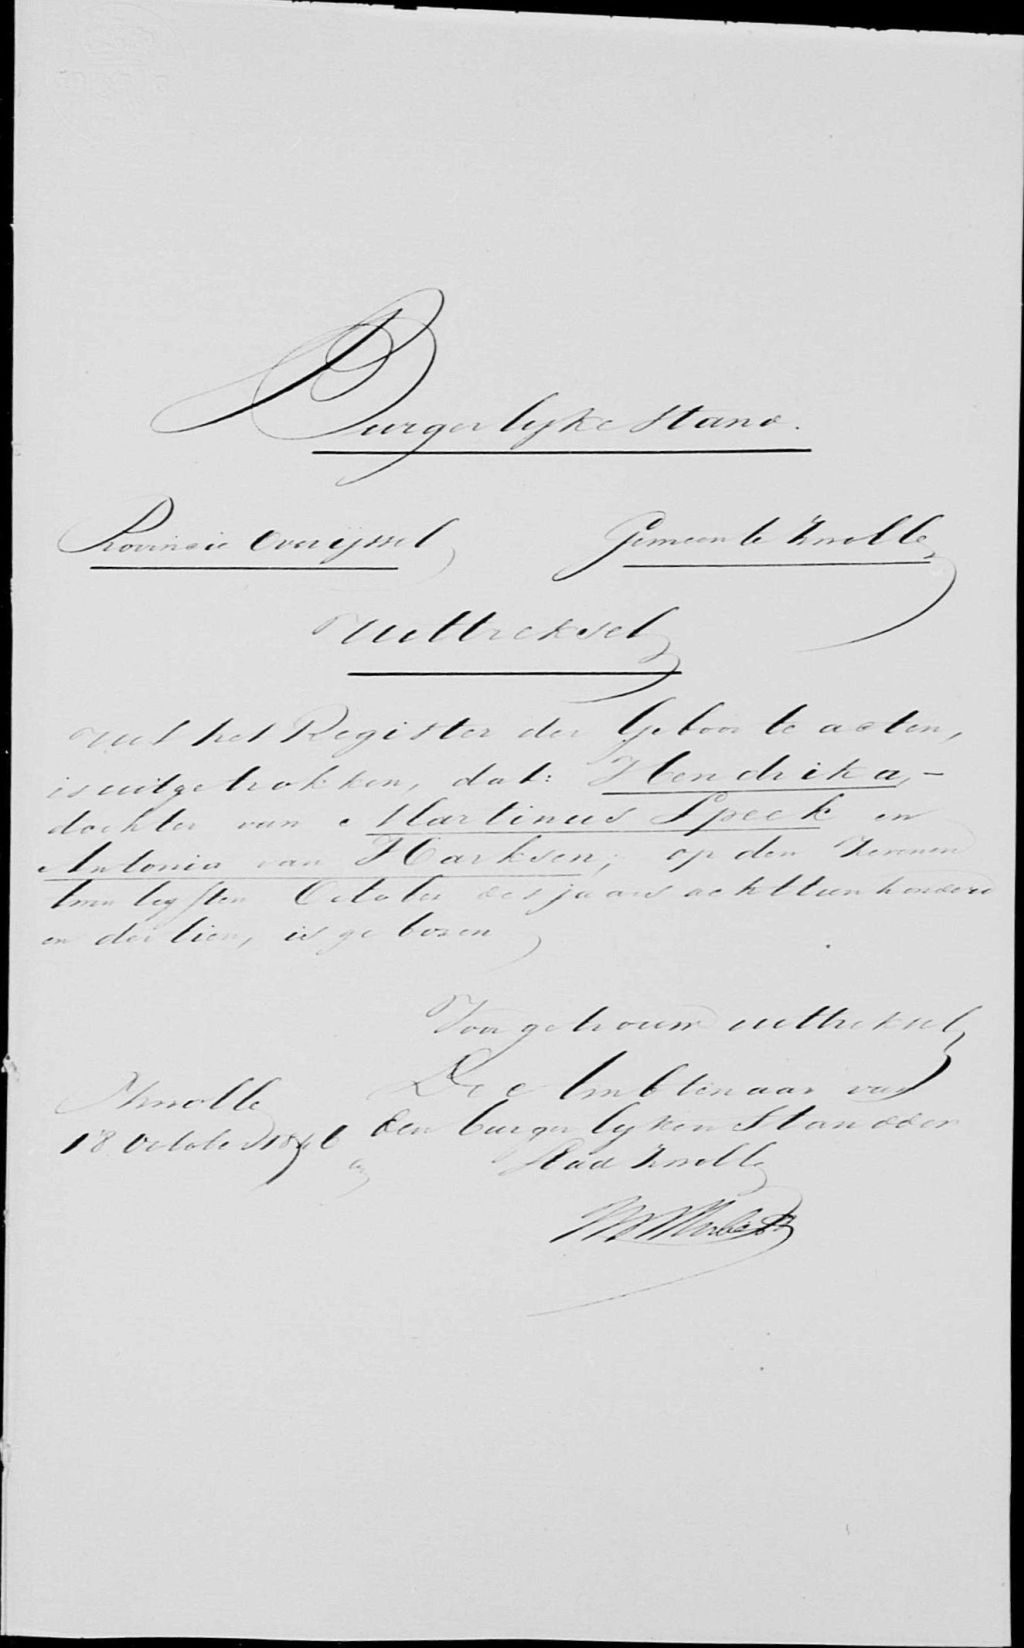 Burgerlyke Stand.
Provincie Overijssel Gemeente Zwolle
Uittreksel
Uit het Register der Geboorte acten,
is uitgetrokken, dat: Hendrika, –
dochter van Martinus Speek en
Antonia van Harksen; op den Zevenen
twintigsten October des jaars achttienhonderd
en dertien, is geboren
Voor getrouw uittreksel
Zwolle De Ambtenaar van
18 October 1846 den burgerlyken Stand der
Stad Zwolle